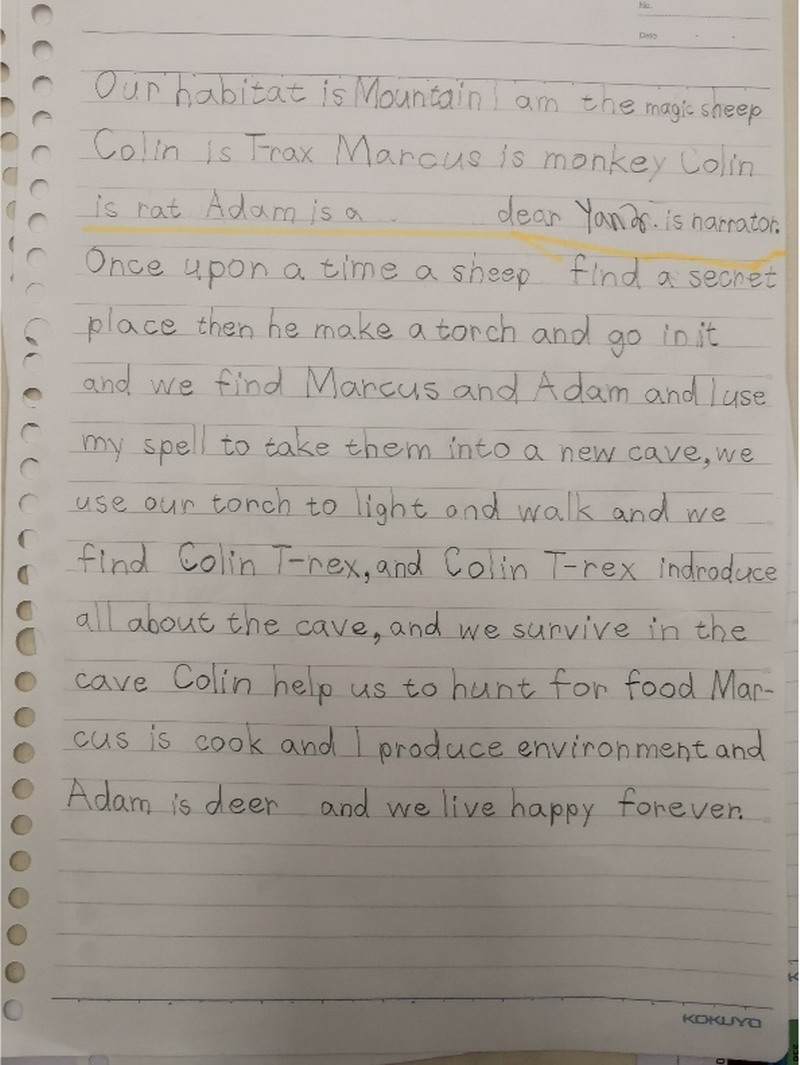 No.
Date
Our habitat is Mountain I am the magic sheep
Colin is T-rax Marcus is monkey Colin
is rat Adam is a dear is narrator.
Once upon a time a sheep find a secret
place then he make a torch and go in it
and we find Marcus and Adam and I use
my spell to take them into a new cave, we
use our torch to light and walk and we
find Colin T-rex, and Colin T-rex indroduce
all about the cave, and we survive in the
cave Colin help us to hunt for food Mar-
cus is cook and I produce environment and
Adam is deer and we live happy forever.
KOKUYO